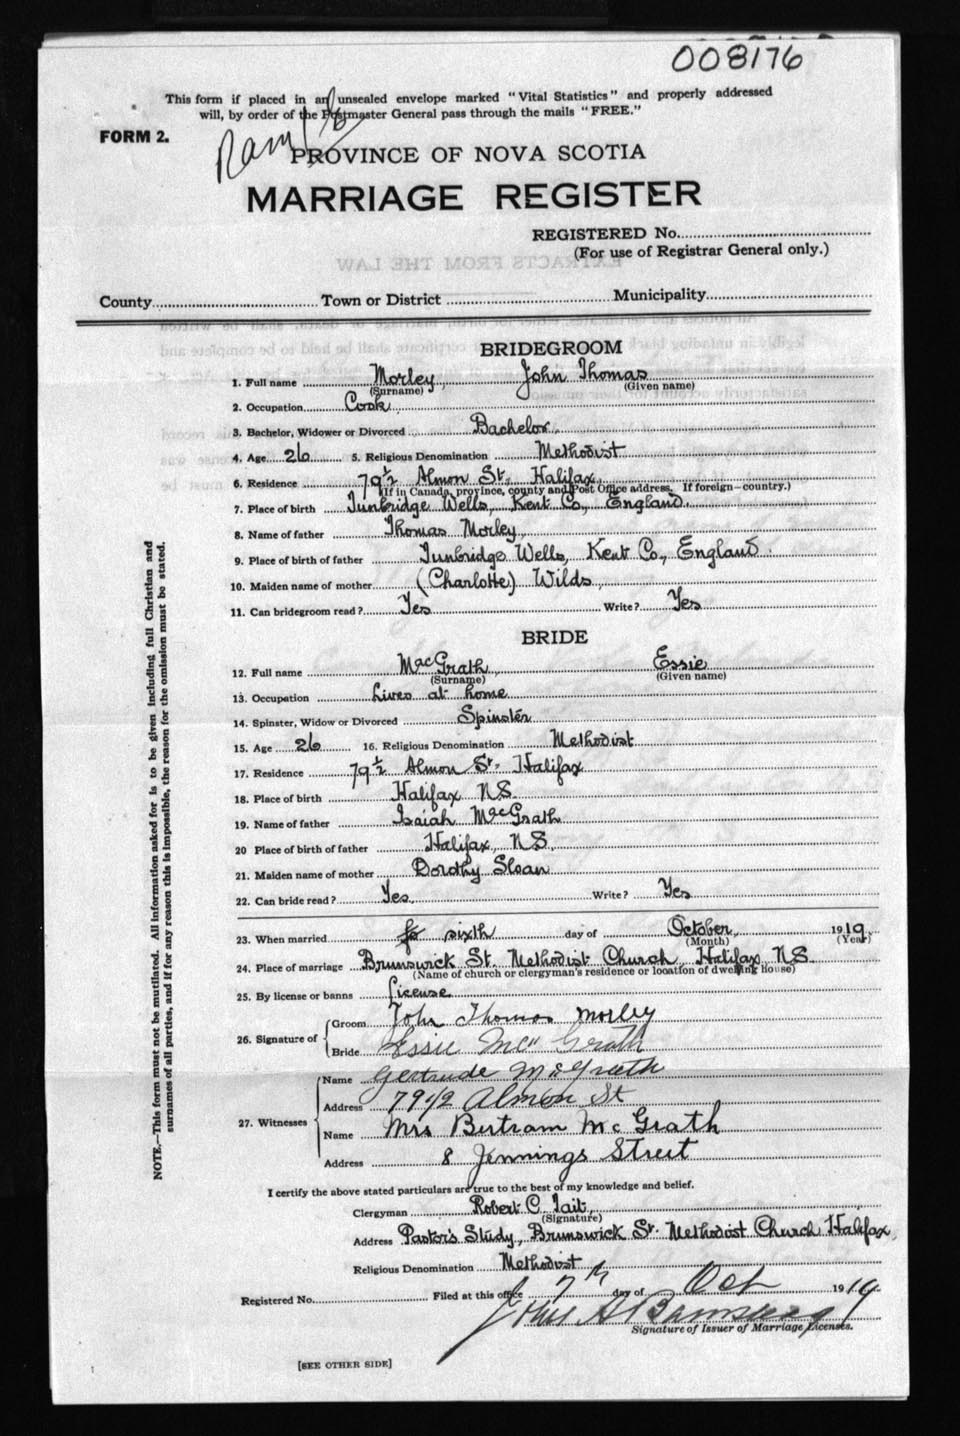 008176
This form if placed in an unsealed envelope marked "Vital Statistics" and properly addressed
will, by order of the Postmaster General pass through the mails "FREE."
FORM 2.
PROVINCE OF NOVA SCOTIA
MARRIAGE REGISTER
REGISTERED No.
(For use of Registrar General only.)
County Town or District Municipality
BRIDEGROOM
1. Full name Morley, John Thomas
(Surname) (Given name)
2. Occupation Cook
3. Bachelor, Widower or Divorced Bachelor
4. Age 26 5. Religious Denomination Methodist
6. Residence 79½ Almon St., Halifax
(If in Canada, province, county and Post Office address. If foreign—country.)
7. Place of birth Tunbridge Wells, Kent Co., England
8. Name of father Thomas Morley,
9. Place of birth of father Tunbridge Wells, Kent Co., England.
10. Maiden name of mother (Charlotte) Wilds,
11. Can bridegroom read? Yes Write? Yes
BRIDE
12. Full name MacGrath, Essie
(Surname) (Given name)
13. Occupation Lives at home
14. Spinster, Widow or Divorced Spinster
15. Age 26 16. Religious Denomination Methodist
17. Residence 79½ Almon St. Halifax
18. Place of birth Halifax N.S.
19. Name of father Isaiah MacGrath
20 Place of birth of father Halifax, N.S.
21. Maiden name of mother Dorothy Sloan
22. Can bride read? Yes. Write? Yes
23. When married sixth day of October, 1919
(Month) (Year)
24. Place of marriage Brunswick St. Methodist Church, Halifax, N.S.
(Name of church or clergyman's residence or location of dwelling house)
25. By license or banns License
26. Signature of
Groom John Thomas Morley
Bride Essie Mc Grath
27. Witnesses
Name Gertrude McGrath
Address 79 1/2 Almon St
Name Mrs Bertram Mc Grath
Address 8 Jennings Street
I certify the above stated particulars are true to the best of my knowledge and belief.
Clergyman Robert C. Tait,
(Signature)
Address Pastor's Study, Brunswick St. Methodist Church Halifax,
Religious Denomination Methodist
Registered No. Filed at this office 7th day of Oct 1919
Signature of Issuer of Marriage Licenses.
[SEE OTHER SIDE]
NOTE.—This form must not be mutilated. All information asked for is to be given including full Christian and
surnames of all parties, and if for any reason this is impossible, the reason for the omission must be stated.